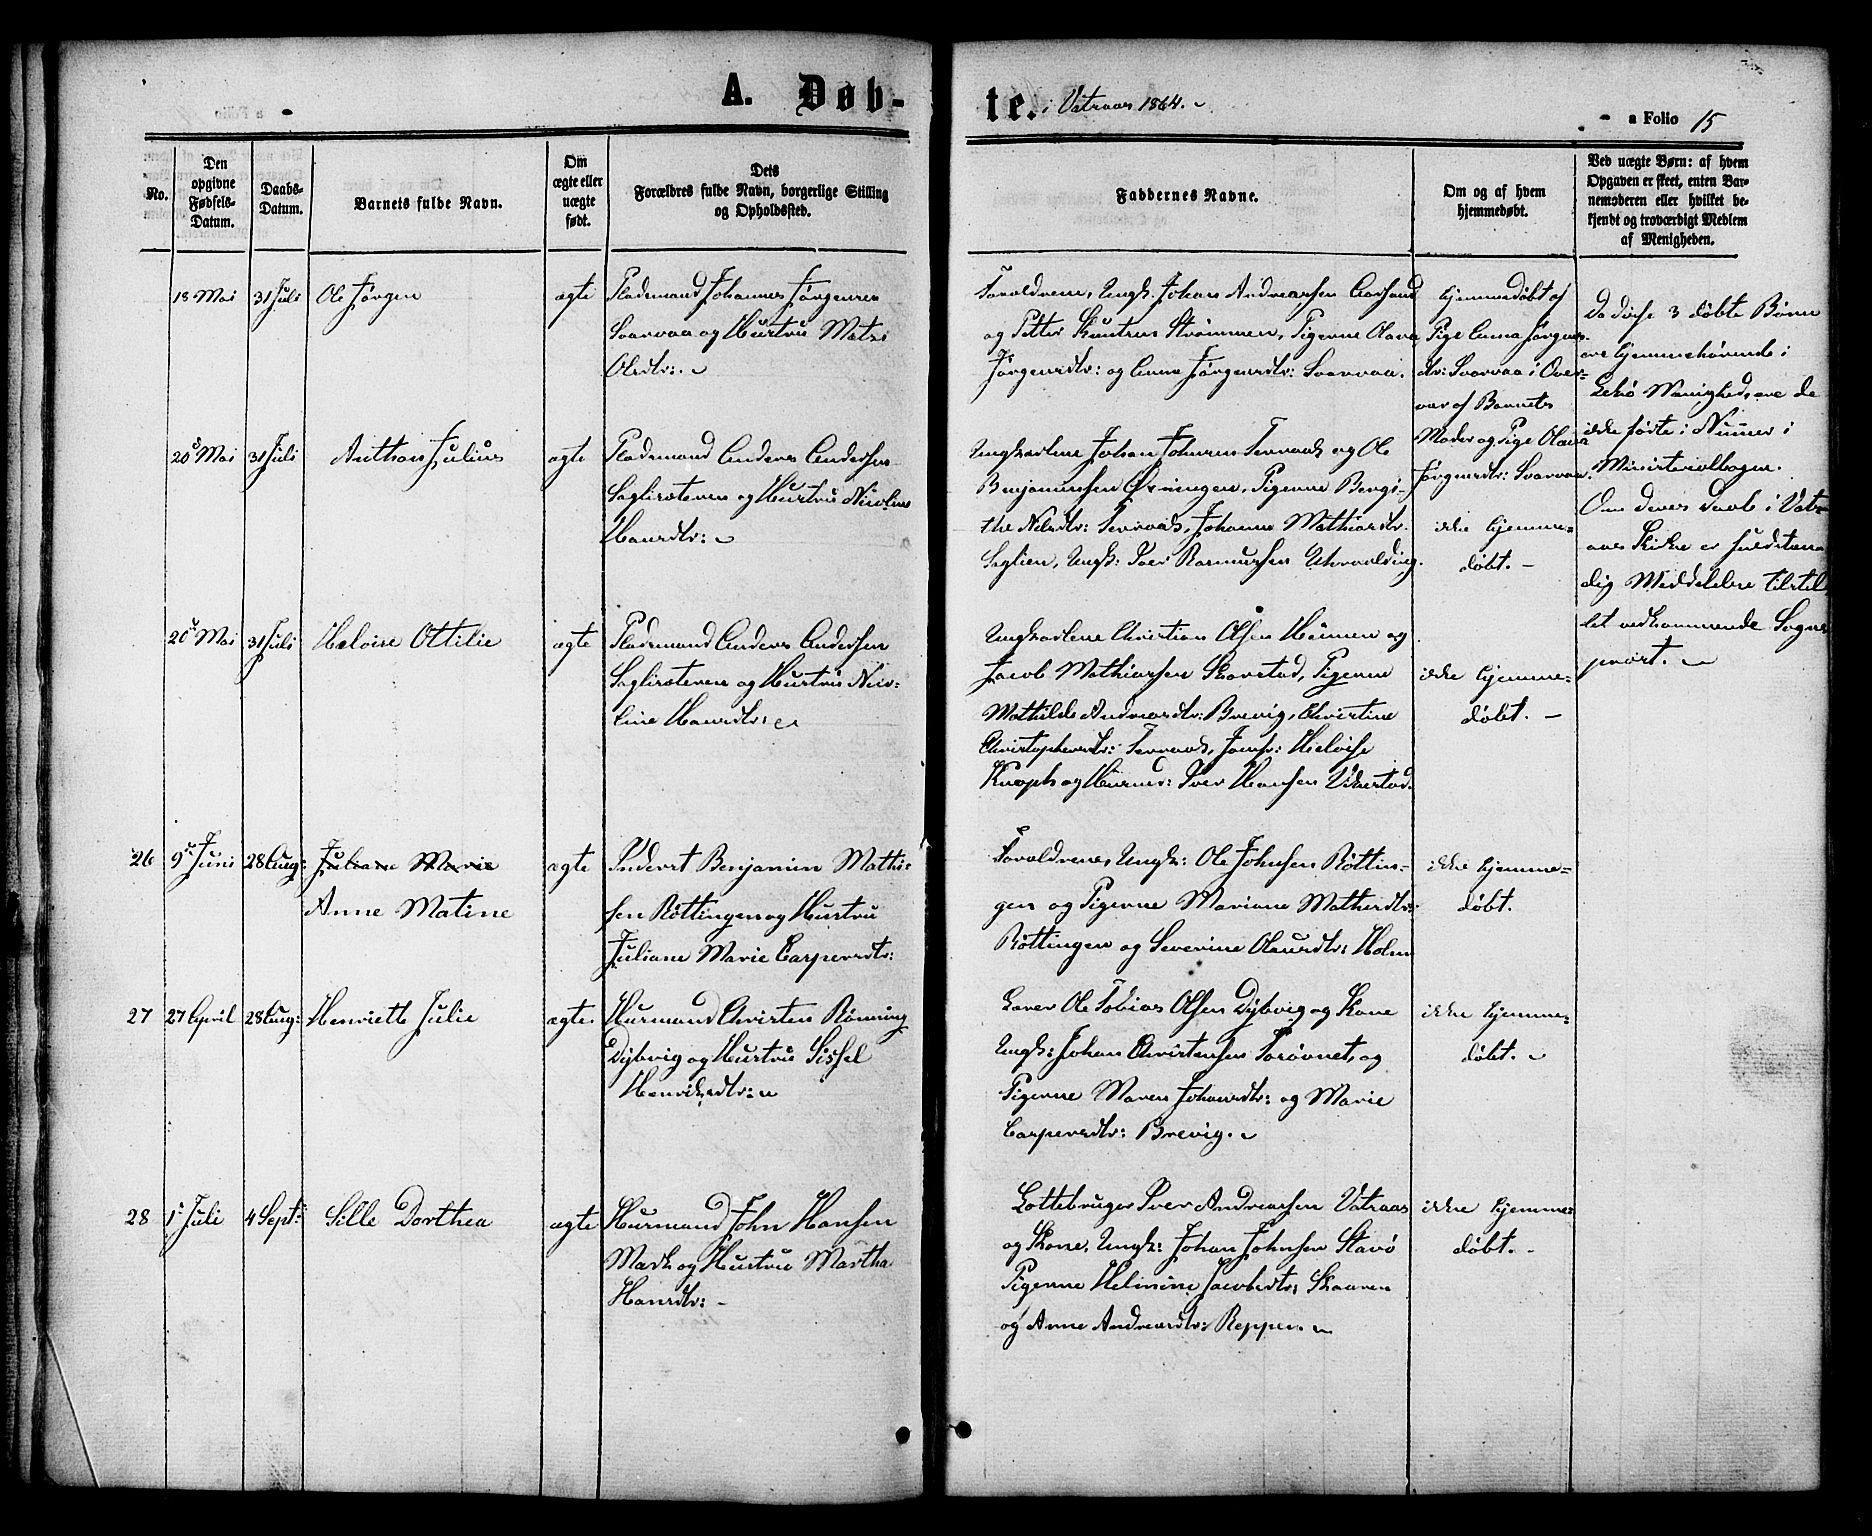 A. Døb-
te. i Vatraas 1864.
a Folio 15
No.
Den
opgivne
Fødsels-
Datum.
Daabs-
Datum.
Barnets fulde Navn.
Om
ægte eller
uægte
født.
Dets
Forældres fulde Navn, borgerlige Stilling
og Opholdssted.
Faddernes Navne.
Om og af hvem
hjemmedøbt.
Ved uægte Børn: af hvem
Opgaven er skeet, enten Bar-
nemoderen eller hvilket be-
kjendt og troværdigt Medlem
af Menigheden.
18 Mai
31 Juli
Ole Jørgen
ægte
Pladsmand Johannes Jørgensen
Svarvaa og Hustru
Olsdtr:
Forældrene, Ungk: Johan Andreassen Aarsand
og Petter Strømmen, Pigerne Olava
Jørgensdtr: og Anna Jørgensdtr: Svarvaa.
hjemmedøbt af
Pige Anna Jørgens-
dtr: Svarvaa i Over-
vær af Barnets
Moder og Pige Olava
Jørgensdtr: Svarvaa.
Da disse 3 døbte Børn
ere hjemmehørende i
Lekø Menighed, ere de
ikke førte i Numer i
Ministerialbogen.
Om deres Daab i Vat-
aas Kirke er fuldstæn-
dig Meddelelse tilstil-
let vedkommende Sogne-
præst.
20 Mai
31 Juli
Anthon Julius
ægte
Pladsmand Anders Andersen
og Hustru Nicoline
Hansdtr:
Ungkarlene Johan Johnsen Terraad og Ole
Benjaminsen Øvningen, Pigerne Bergi-
the Nilsdtr: Terraad, Johanna Mathiasdtr.
Saglien, Ungk: Iver Rasmussen
ikke hjemme-
døbt.
20 Mai
31 Juli
Heloise Ottilie
ægte
Pladsmand Anders Andersen
og Hustru Nico-
line Hansdtr:
Ungkarlene Christian Olsen og
Jacob Mathiassen Skarstad, Pigerne
Mathilde Andreasdtr: Brevig, Christine
Christophersdtr: Terraad, Jomfr: Heloise
Knoph og Huusmd: Iver Hansen Vikestad.
ikke hjemme-
døbt.
26
9 Juni
28 Aug:
Juliane Marie
Anne Matine
ægte
Inderst Benjamin Mathi-
sen Røttingen og Hustru
Juliane Marie Caspersdtr:
Forældrene, Ungk: Ole Johnsen Røttin-
gen og Pigerne Mariane Mathisdtr:
Røttingen og Severine Olausdtr: Holm
ikke hjemme-
døbt.
27
27 April
28 Aug:
Henriette Julie
ægte.
Husmand Christen Rønning
Dybvig og Hustru Sissel
Henriksdtr:
Ole Tobias Olsen Dybvig og Kone
Ungk: Johan Christensen og
Pigerne Maren Johansdtr: og Marie
Caspersdtr: Brevig.
ikke hjemme-
døbt.
28
1 Juli
4 Sept:
Sille Dorthea
ægte
Husmand John Hansen
Mark og Hustru Martha
Hansdtr:
Lottebruger Iver Andreassen Vatraas
og Kone, Ungk: Johan Johnsen Stavø
Pigerne Helmine Jacobsdtr: Skaaren
og Anne Andreasdtr: Reppen.
ikke hjemme-
døbt.